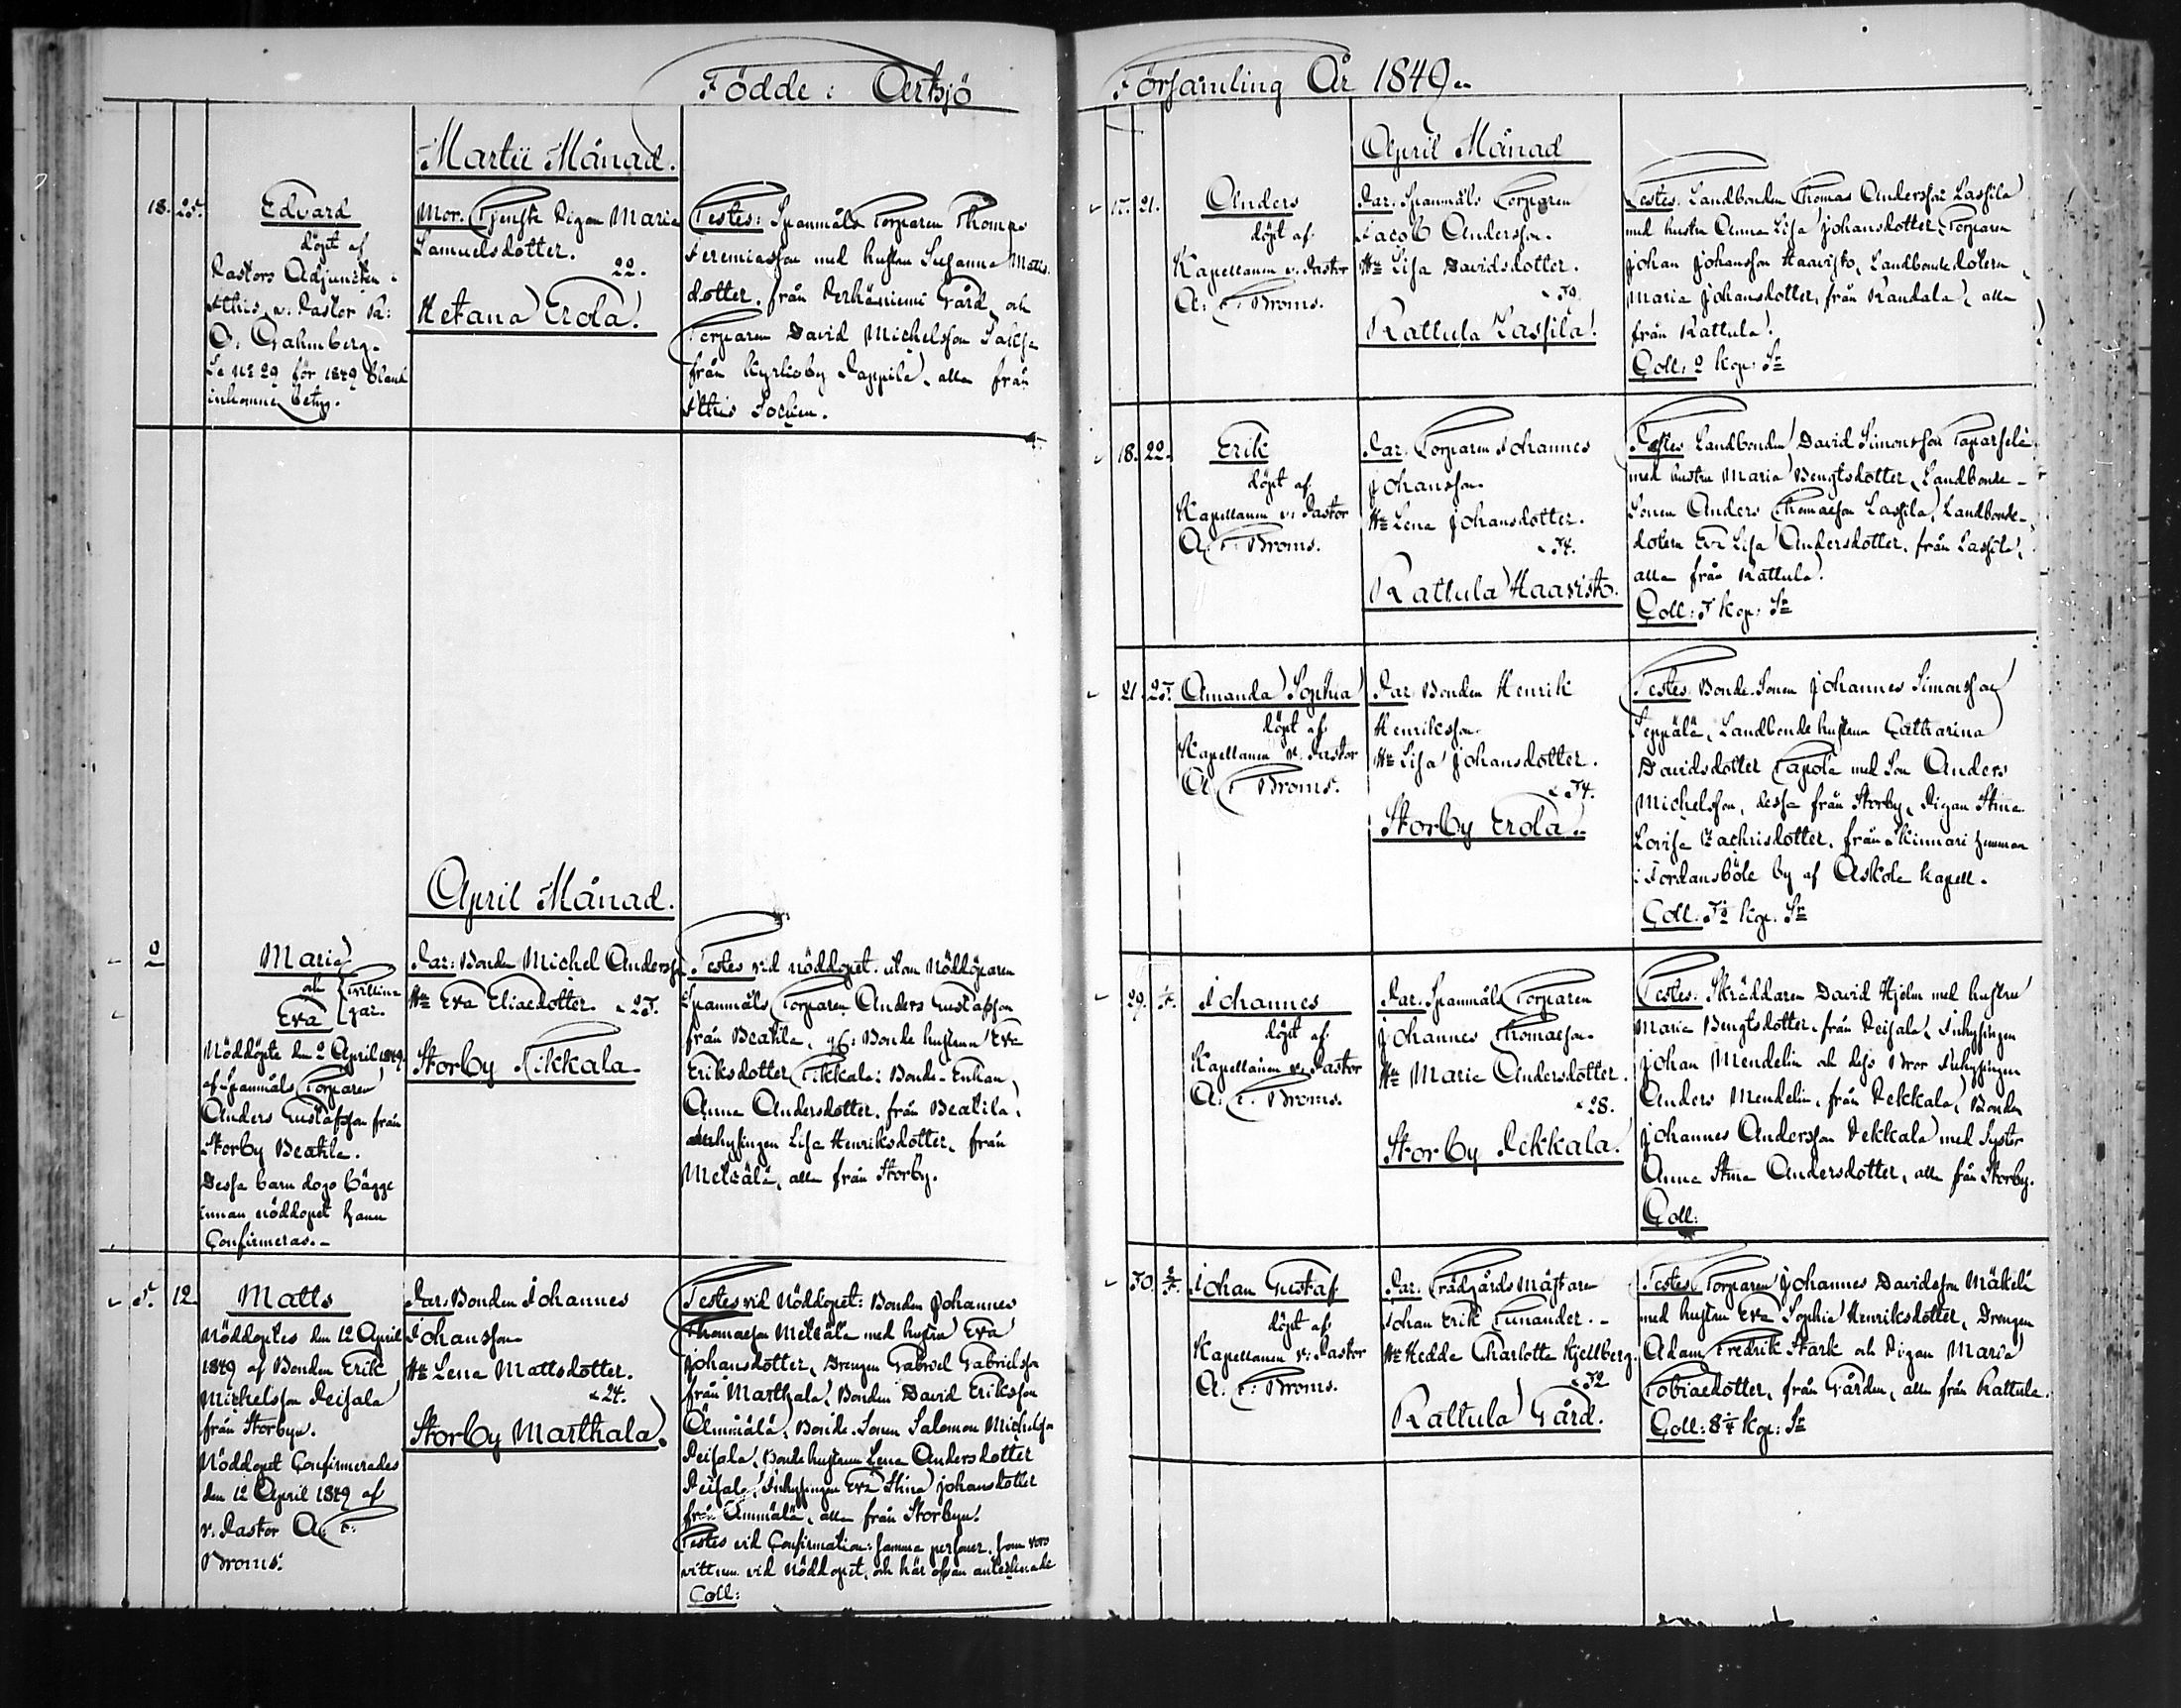 Födde i Artsjö
Martii Månad.
18. 25.
Edvard
döpt af
Pastors Adjuncten i
Ithis, v. Pastor K:
O: Gahmberg.
Se No 29 för 1849 bland
inkomne betyg.
Mor. Tjenste Pigan Maria
Samuelsdotter.
22.
Hetana Erola.
Testes: Spanmåls Torparen Thomas
Jeremiasson med hustru Susanna Matts-
dotter, från Perhäniemi Gård, och
Torparen David Michelsson
från Kyrkoby Pappila, alla från
Ithis Socken.
April Månad.
2
Maria
och Tvillin-
Eva gar.
Nöddöpte den 2 April 1849
af Spanmåls Torparen
Anders Gustafsson från
Storby Beatila.
Dessa barn dogo bägge
innan nöddopet hann
Confirmeras.-
Par: Bonden Michel Anderss
Hu Eva Eliaedotter. 25.
Storby Tikkala
Testes vid nöddopet utom Nöddöparen
Spanmåls Torparen Anders Gustafsson
från Beatila, Bonde hustrun Eva
Eriksdotter Tikkala: Bonde-Enkan
Anna Andersdotter, från Beatila,
Inhysingen Lisa Henriksdotter, från
Metsälä, alla från Storby.
5. 12.
Matts
Nöddöptes den 12 April
1849 af Bonden Erik
Michelsson Peisala
från Storbyn.
Nöddopet Confirmerades
den 12 April 1849 af
v. Pastor A. F.
Broms.
Par: Bonden Johannes
Johansson
Hu Lena Mattsdotter.
24.
Storby Marthala.
Testes vid Nöddopet: Bonden Johannes
Thomaeson Metsälä med hustru Eva
Johansdotter, Drengen Gabriel Gabrielsson
från Marthala, Bonden David Eriksson
Ämmälä, Bonde-Sonen Salomon Michelsson
Peisala, Bondehustrun Lena Andersdotter
Peisala, Inhysingen Eva Stina Johansdotter
från Ämmälä, alla från Storbyn.
Testes vid Confirmation: samma personer, som voro
vittnen vid Nöddopet, och här ofvan antecknade
Coll:
Församling År 1849
April Månad
21.
Anders
döpt af
Kapellanen v. Pastor
A. F. Broms.
Par. Spanmåls Torparen
Jacob Andersson.
Hu Lisa Davidsdotter.
Rattula Lassila.
Testes. Landbonden Thomas Andersson Lassila
med hustru Anna Lisa Johansdotter, Torparen
Johan Johansson Haavisto, Landbondedotern
Maria Johansdotter, från Randala, alla
från Rattula.
Coll: 2 kop: Sr
18. 22.
Erik
döpt af
Kapellanen v. Pastor
A. F. Broms.
Par. Torparen Johannes
Johansson.
Hu Lena Johansdotter.
34.
Rattula Haavisto.
Testes Landbonden David Simonsson
med hustru Maria Bengtsdotter, Landbonde-
Sonen Anders Thomaeson Lassila, Landbonde-
dotern Eva Lisa Andersdotter, från Lassila,
alla från Rattula.
Coll: 5 kop: Sr
21. 25.
Amanda Sophia
döpt af
Kapellanen v. Pastor
A. F. Broms.
Par Bonden Henrik
Henriksson.
Hu Lisa Johansdotter.
34.
Storby Erola.
Testes. Bonde-Sonen Johannes Simonsson
Seppälä, Landbonde hustrun Catharina
Davidsdotter Tapola med Son Anders
Michelsson, dessa från Storby, Pigan Stina
Lovisa Zachrisdotter, från Kinnari hemman
i Jordansböle by af Askola kapell.
Coll. kop. Sr
29.
Johannes
döpt af
Kapellanen v. Pastor
A. F. Broms.
Par. Spanmåls Torparen
Johannes Thomaeson.
Hu Maria Andersdotter.
28.
Storby Pekkala.
Testes: Skräddaren David Hjelm med hustru
Maria Bengtsdotter från Peisala, Inhysingen
Johan Mendelin och dess Bror Inhysingen
Anders Mendelin, från Pekkala, Bonden
Johannes Andersson Pekkala med Syster
Anna Stina Andersdotter, alla från Storby.
Coll:
30.
Johan Gustaf
döpt af
Kapellanen v: Pastor
A. F: Broms.
Par. Trädgårds Mästaren
Johan Erik Tunander.-
Hu Hedda Charlotta Kjellberg.
32
Rattula Gård.
Testes. Torparen Johannes Davidsson Mäkelä
med hustru Eva Sophia Henriksdotter, Drengen
Adam Fredrik Stark och Pigan Maria
Tobiaedotter, från Gården, alla från Rattula.
Coll: kop: Sr